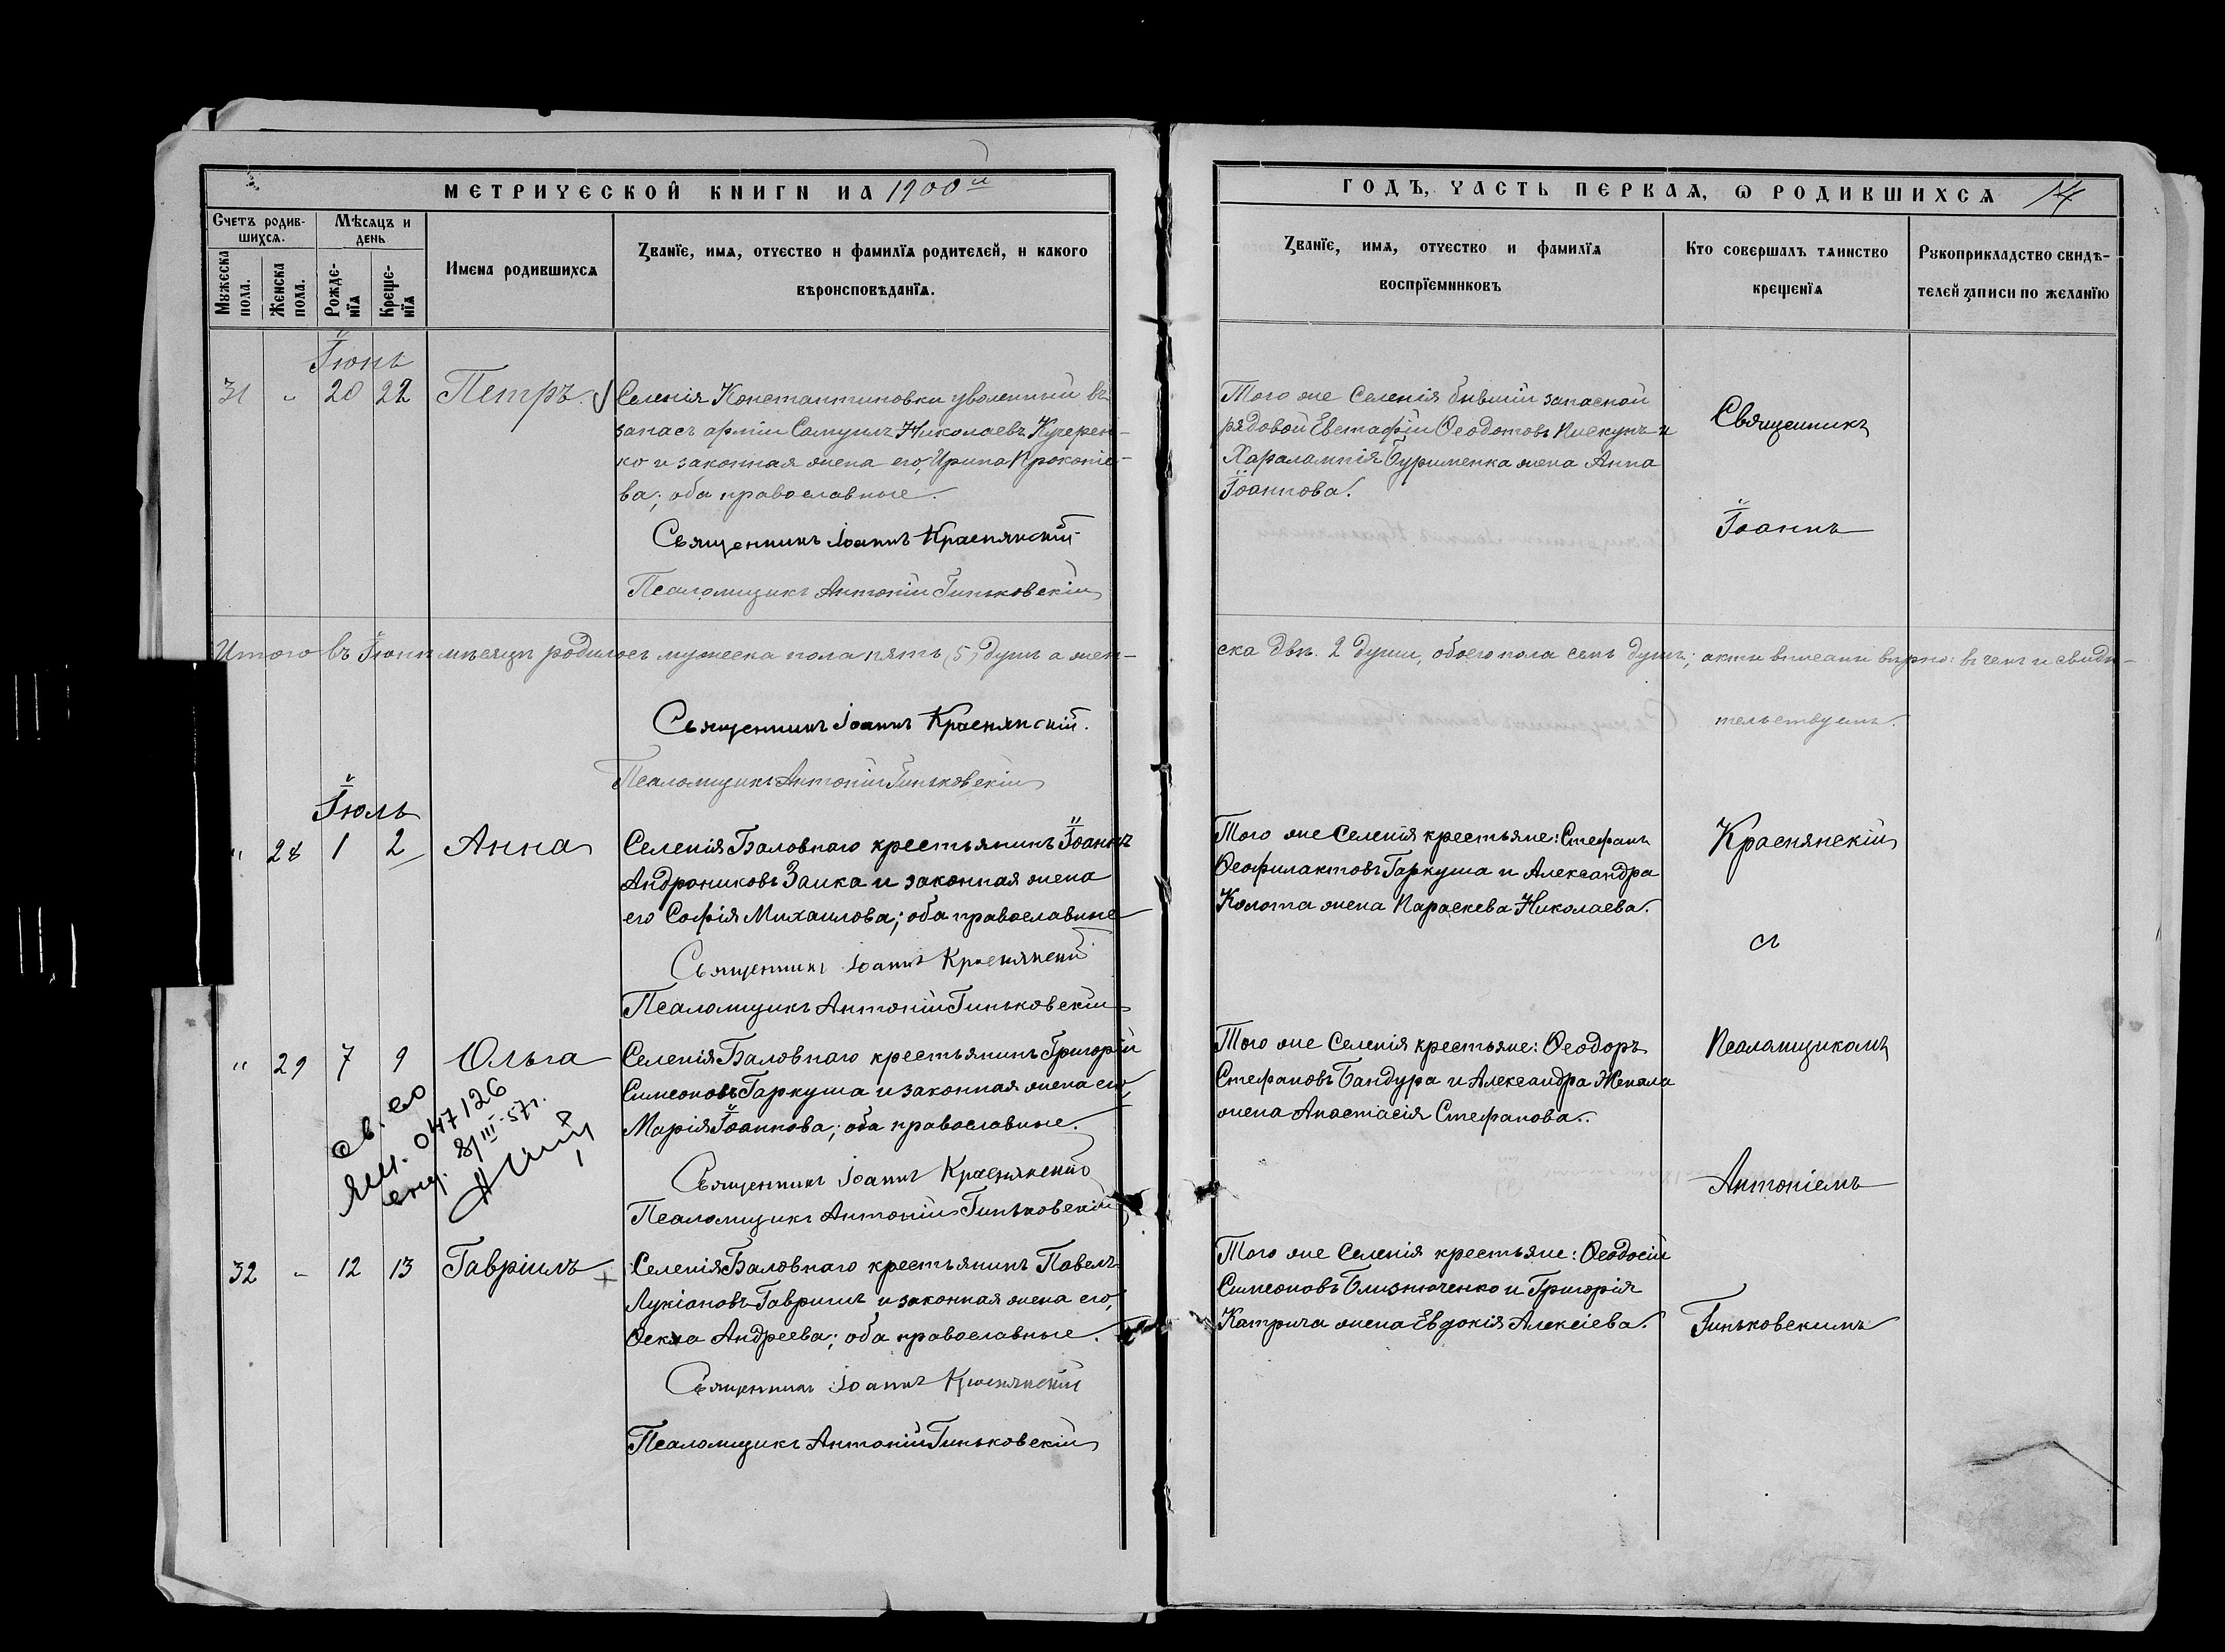 МЕТРИЧЕСКОЙ КНИГИ НА 1900й
Счетъ родив-
шихсѧ.
Мужеска
пола.
Женска
пола.
Мѣсѧцъ и
день
Рожде-
нїѧ
Креще-
нїѧ
Имена родившихсѧ
Званїе, имѧ, отчество и фамилїѧ родителей, и какого
вѣроисповѣданїѧ.
Іюнь
31 " 20 22 Петръ.
Селенія Константиновки уволенный въ
запасъ арміи Самуилъ Николаевъ Кучерен-
ко и законная жена его, Ирина Прокопіе-
ва; оба православные.
Священникъ Іоаннъ Краснянскій
Псаломщикъ Антоній Гиньковскій
Итого въ Іюнѣ мѣсяцѣ родилось мужеска пола пять (5) душъ а жен-
Священникъ Іоаннъ Краснянскій.
Псаломщикъ Антоній Гиньковскій
Іюль
" 28 1 2 Анна
Селенія Баловнаго крестьянинъ Іоаннъ
Андрониковъ Заика и законная жена
его Софія Михаилова; оба православные
Священникъ Іоаннъ Краснянскій
Псаломщикъ Антоній Гиньковскій
" 29 7 9 Ольга
Селенія Баловнаго крестьянинъ Григорій
Симеоновъ Гаркуша и законная жена его,
Марія Іоаннова; оба православные.
Священникъ Іоаннъ Краснянскій
Псаломщикъ Антоній Гиньковскій
св. во
047126
8/III-57г.
32 " 12 13 Гавріилъ
Селенія Баловнаго крестьянинъ Павелъ
Лукіановъ Гавришъ и законная жена его,
Ѳекла Андреева; оба православные.
Священникъ Іоаннъ Краснянскій
Псаломщикъ Антоній Гиньковскій
ГОДЪ, ЧАСТЬ ПЕРВАѦ, Ѡ РОДИВШИХСѦ 14
Званїе, имѧ, отчество и фамилїѧ
воспрїемниковъ
Кто совершалъ таинство
крещенїѧ
Рукоприкладство свидѣ-
телей записи по желанїю
Того же Селенія бывшій запасной
рядовой Евстафій Ѳеодотовъ Пискунъ и
Харалампія Бурименка жена Анна
Іоаннова.
Священникъ
Іоаннъ
ска двѣ. 2 души, обоего пола семь душъ; акты вписаны вѣрно: въ чемъ и свидѣ-
тельствуемъ.
Того же Селенія крестьяне: Стефанъ
Ѳеофилактовъ Гаркуша и Александра
Колота жена Параскева Николаева.
Краснянскій
съ
Того же Селенія крестьяне: Ѳеодоръ
Стефановъ Бандура и Александра Жекала
жена Анастасія Стефанова.
Псаломщикомъ
Антоніемъ
Того же Селенія крестьяне: Ѳеодосій
Симеоновъ Близнюченко и Григорія
Катрича жена Евдокія Алексіева.
Гиньковскимъ